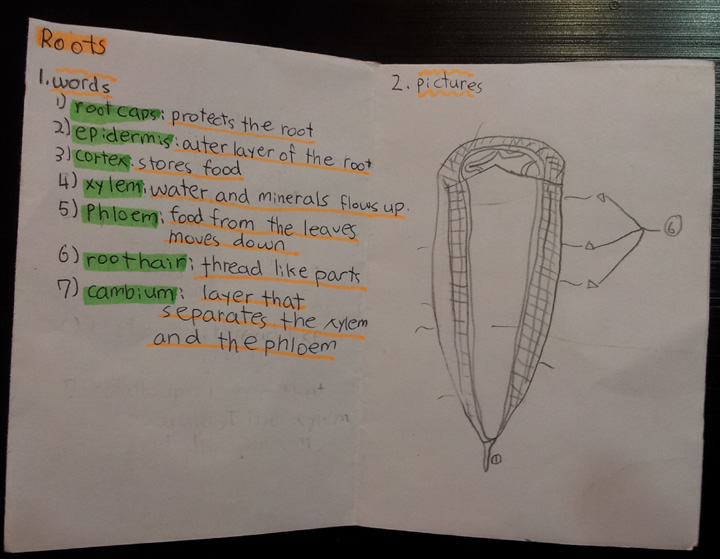 Roots
1. words
1) root caps: protects the root
2) epidermis: outer layer of the root
3) cortex: stores food
4) xylem: water and minerals flows up.
5) Phloem: food from the leaves
moves down
6) root hair: thread like parts
7) cambium: layer that
separates the xylem
and the phloem
2. pictures
6
1